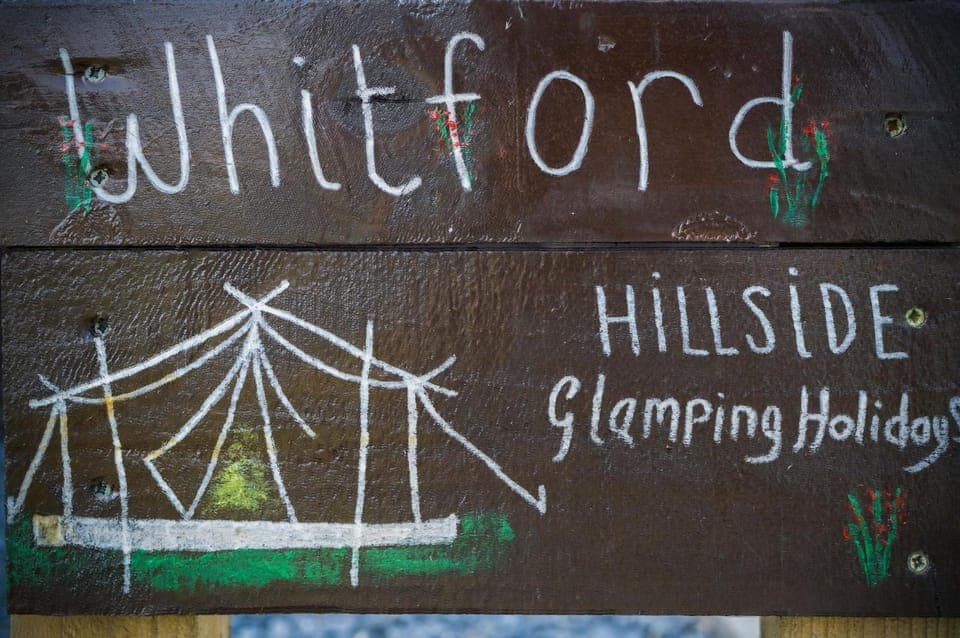 Whitford
HiLLSiDE
Glamping Holidays